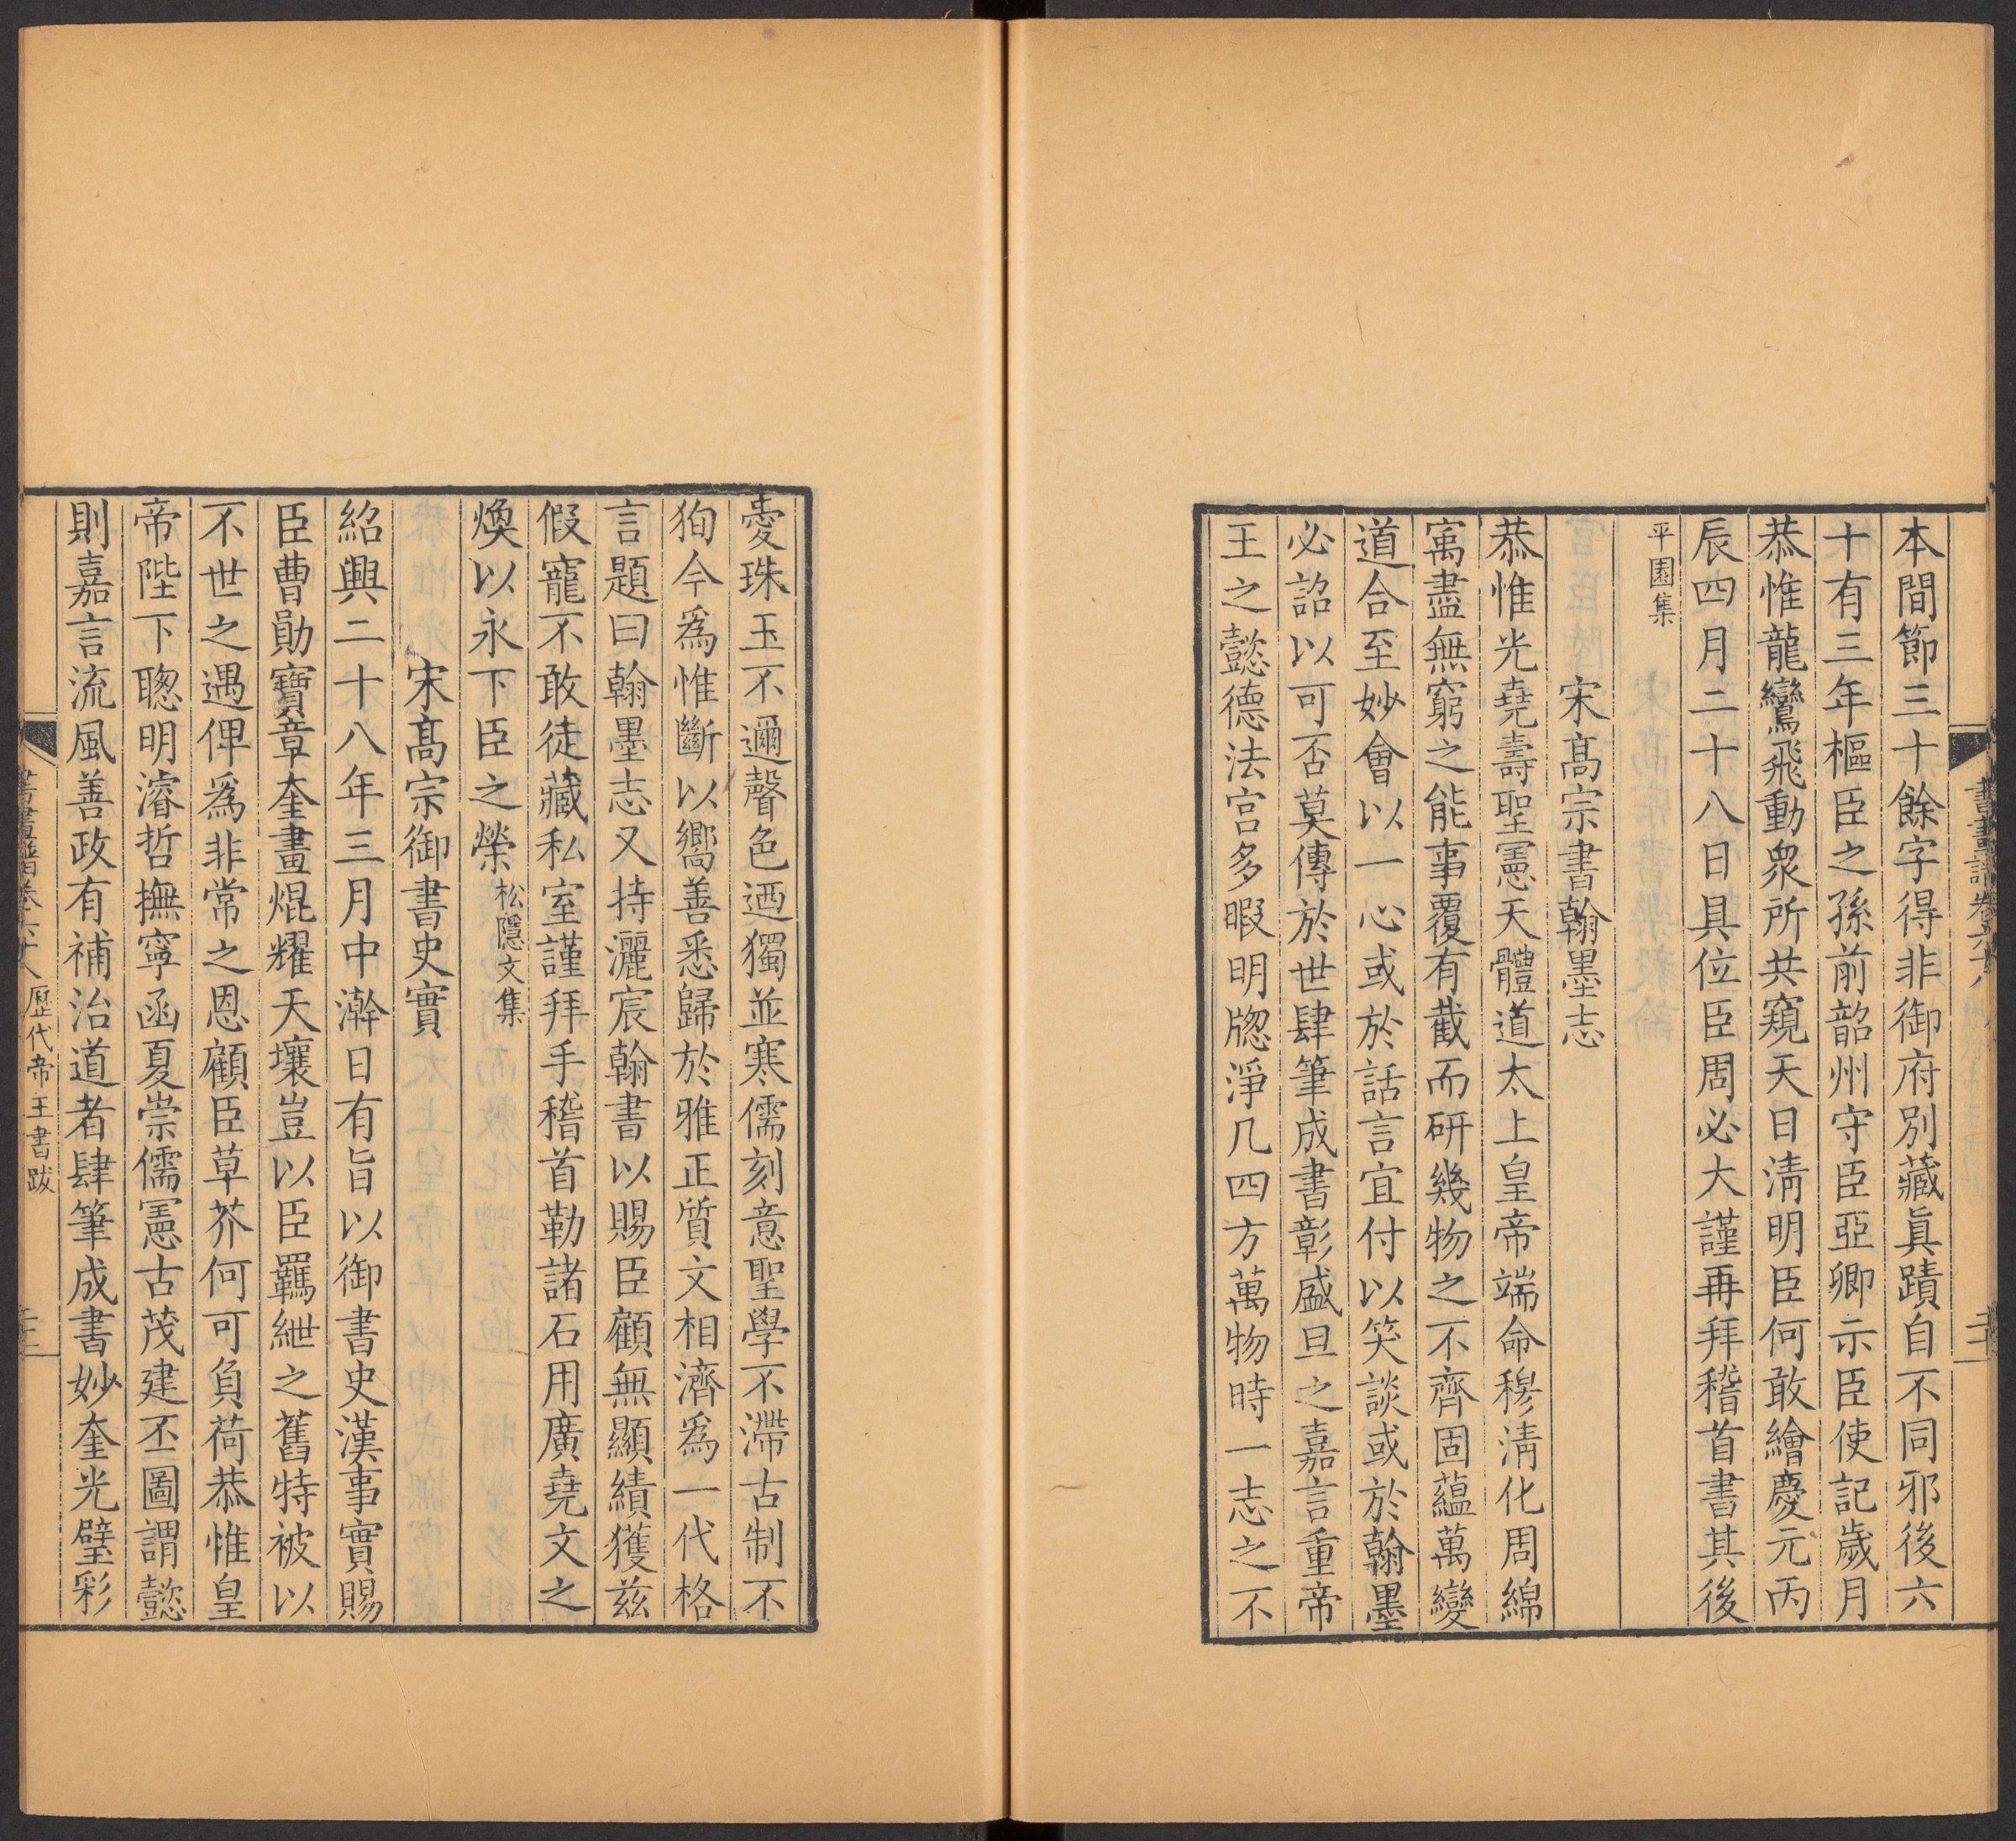 本間節三十餘字得非御府別藏眞蹟自不同邪後六
十有三年樞臣之孫前韶州守臣亞卿示臣使記歲月
恭惟龍鸞飛動衆所共窺天日淸明臣何敢繪慶元丙
辰四月二十八日具位臣周必大謹再拜稽首書其後
平園集
宋髙宗書翰墨志
恭惟光堯壽聖憲天體道太上皇帝端命穆淸化周綿
㝢盡無窮之能事覆有截而研幾物之不齊固蘊萬變
道合至妙會以一心或於話言宜付以笑談或於翰墨
必詔以可否莫傳於世肆筆成書彰盛旦之嘉言重帝
王之懿德法宫多暇明牎淨几四方萬物時一志之不
憂珠玉不邇聲色迺獨並寒儒刻意聖學不滯古制不
狥今爲惟斷以嚮善悉歸於雅正質文相濟爲一代格
言題曰翰墨志又持灑宸翰書以賜臣顧無顯績獲兹
假寵不敢徒藏私室謹拜手稽首勒諸石用廣堯文之
煥以永下臣之榮松隱文集
宋髙宗御書史實
紹興二十八年三月中澣日有旨以御書史漢事實賜
臣曹勛寶章奎畫焜耀天壤豈以臣羈紲之舊特被以
不世之遇俾爲非常之恩顧臣草芥何可負荷恭惟皇
帝陛下聰明濬哲撫寧函夏崇儒憲古茂建丕圖謂懿
則嘉言流風善政有補治道者肆筆成書妙奎光璧彩
歷代帝王書跋